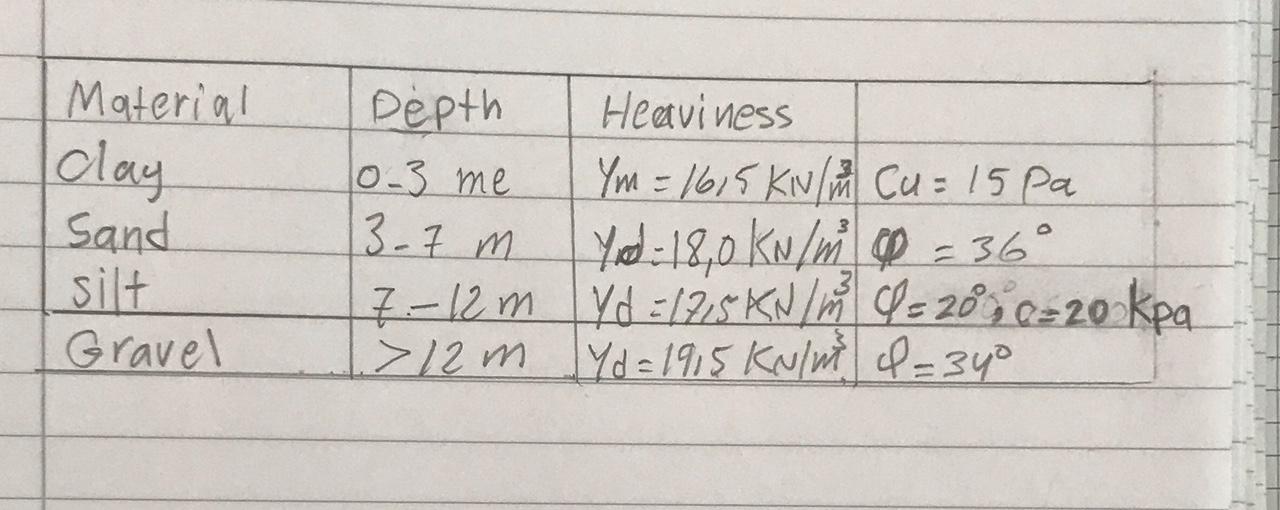 Material Depth Heaviness
Clay 0-3 me γm = 16,5 KN/m³ Cu = 15 Pa
Sand 3-7 m γd = 18,0 KN/m³ φ = 36°
silt 7-12 m γd = 17,5 KN/m³ φ = 20°; c = 20 kpa
Gravel >12 m γd = 19,5 KN/m³ φ = 34°